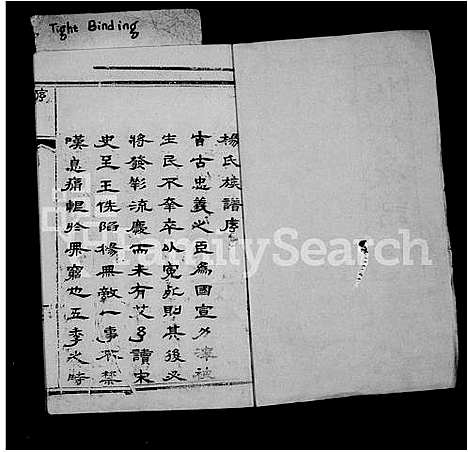 Tight Binding
序
楊氏族譜序
古忠義之臣為國宣力澤被
生民不幸卒以冤死則其後必
將發彰流慶而未有艾予讀宋
史至王侁陷楊無敵一事不禁
嘆息痛恨於無窮也五季之時
FamilySearch